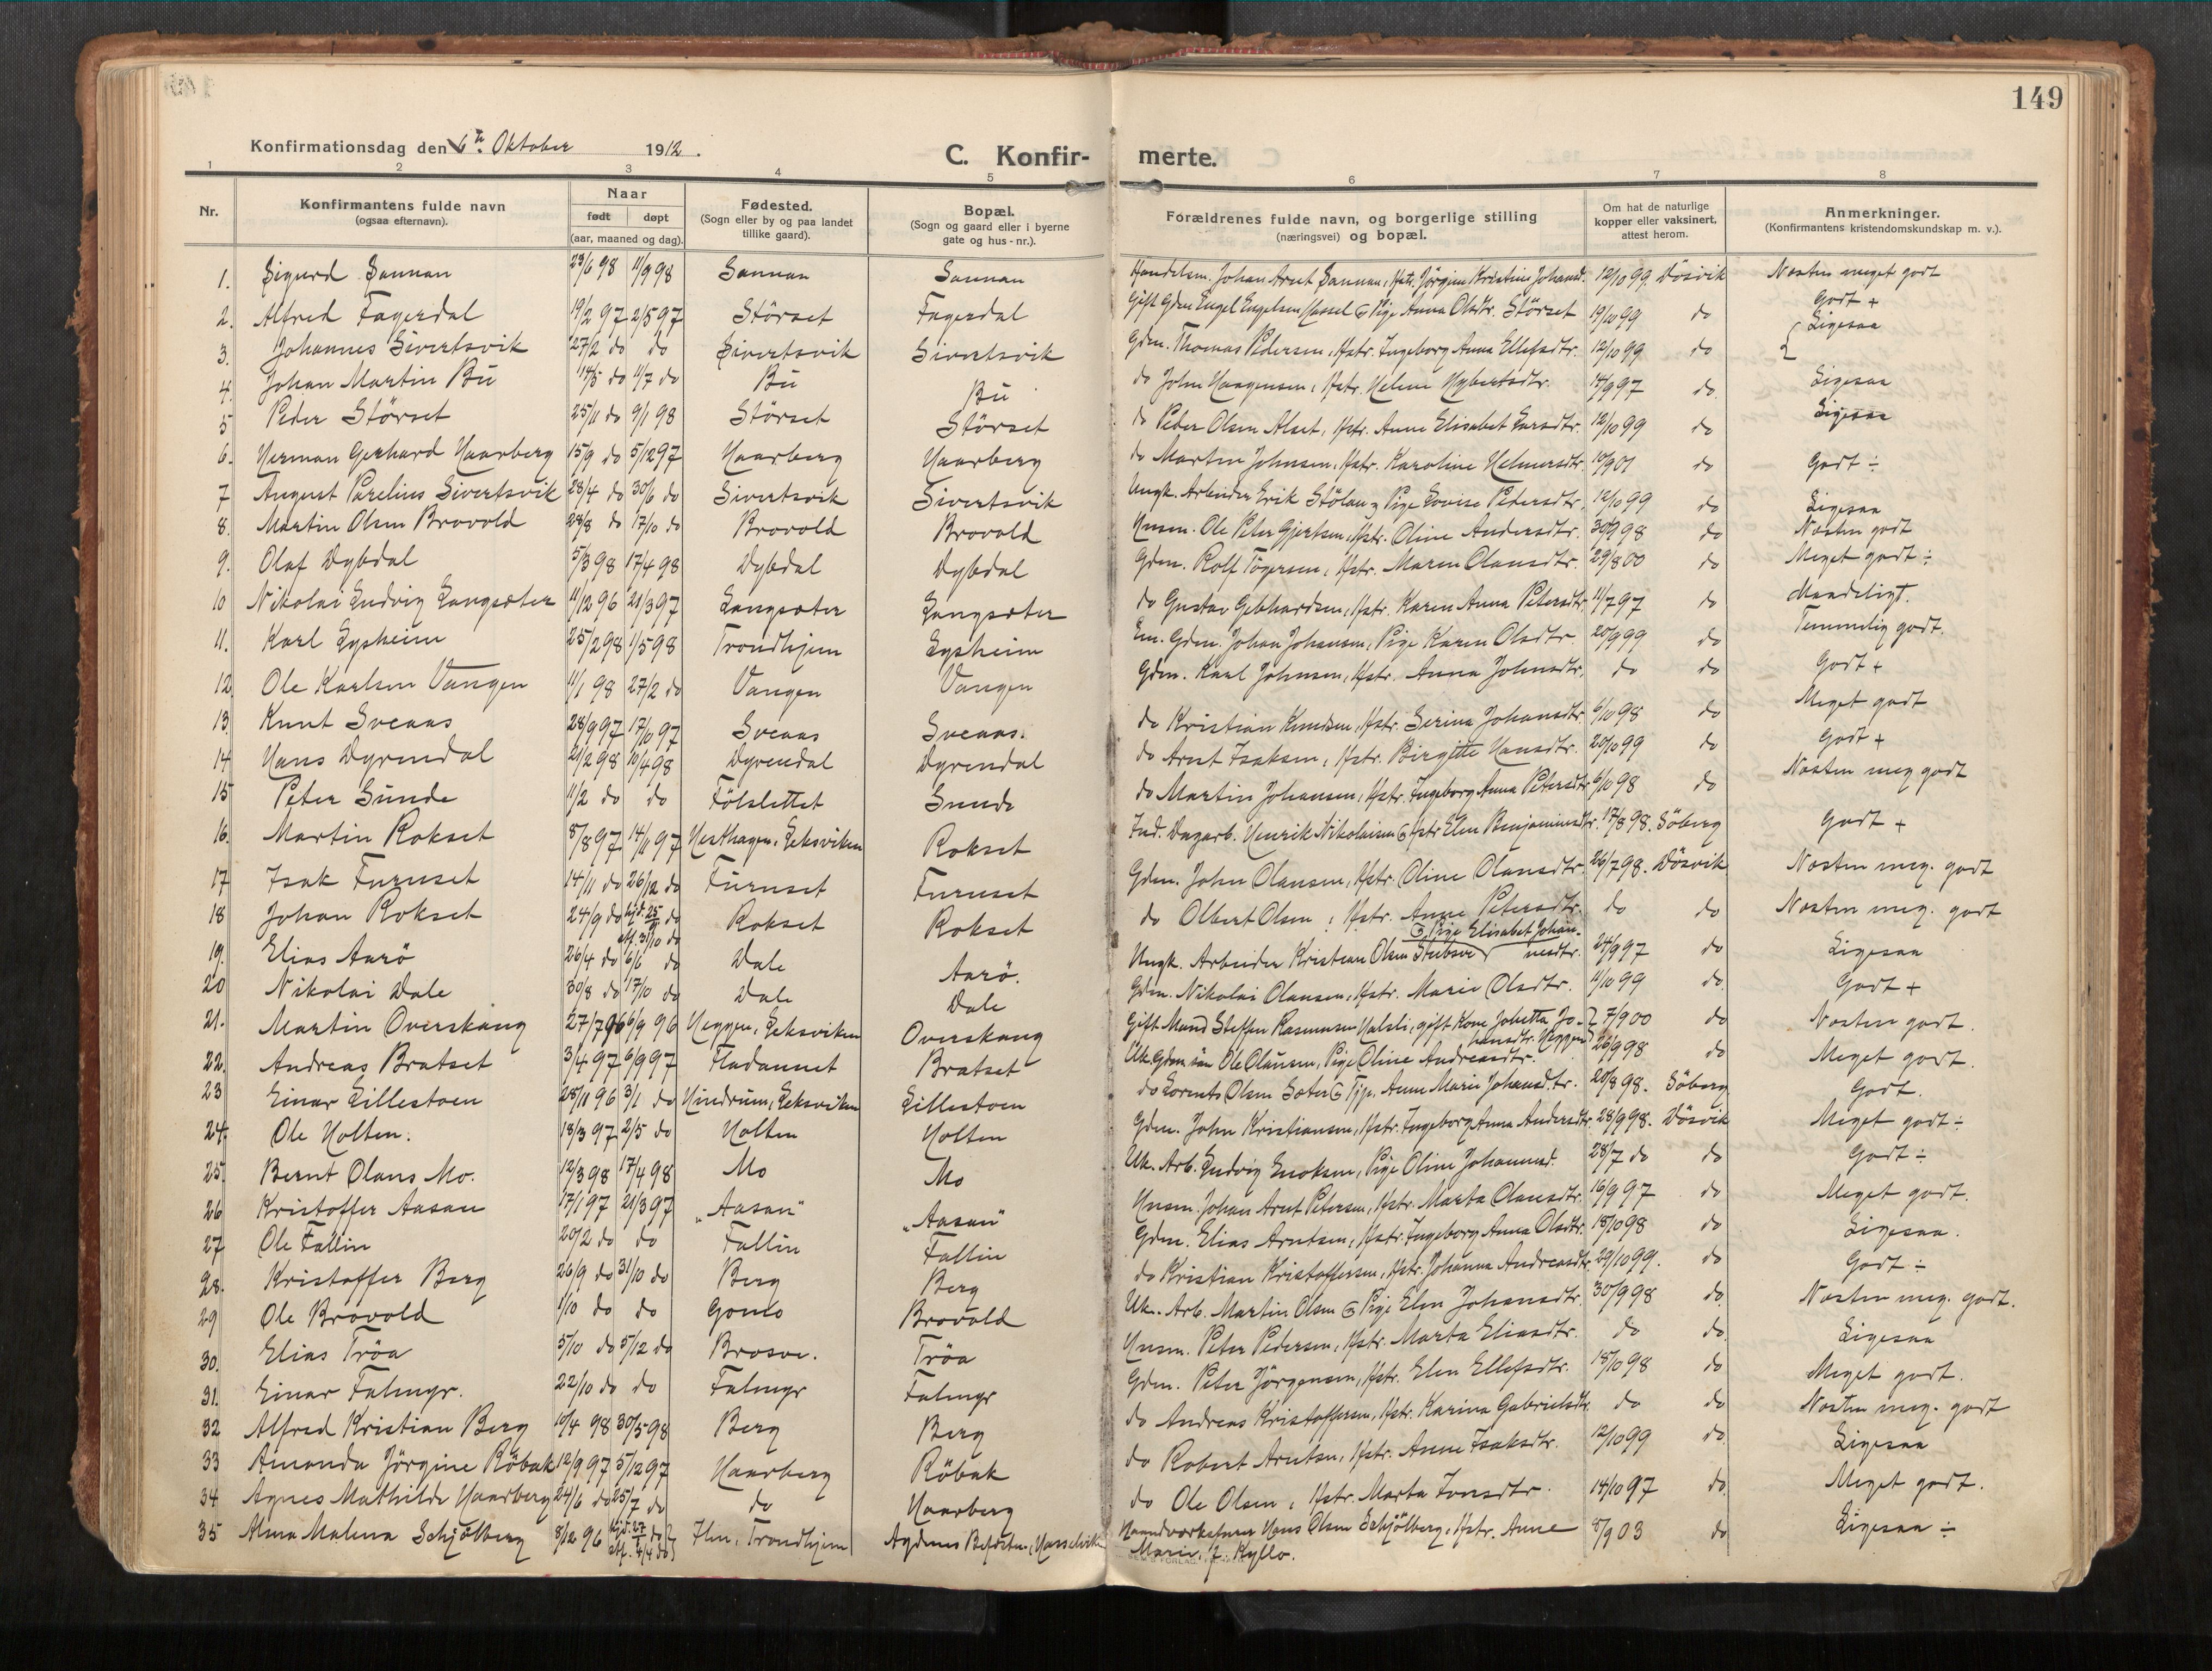 149
Konfirmationsdag den 6te Oktober 1912.
C. Konfir- merte.
1 2 3 4 5 6 7 8
Nr.
Konfirmantens fulde navn
(ogsaa efternavn).
Naar
født døpt
(aar, maaned og dag).
Fødested.
(Sogn eller by og paa landet
tillike gaard).
Bopæl.
(Sogn og gaard eller i byerne
gate og hus-nr.).
Forældrenes fulde navn, og borgerlige stilling
(næringsvei) og bopæl.
Om hat de naturlige
kopper eller vaksinert,
attest herom.
Anmerkninger.
(Konfirmantens kristendomskundskap m. v.).
1. Sigurd Sannan 23/6 98 11/9 98 Sannan Sannan Handelsm. Johan Arnt Sannan, Hstr. Jörgine Kristine Johansd. 12/10 99 Dösvik Næsten meget godt
2. Alfred Fagerdal 19/2 97 2/5 97 Störset Fagerdal Gift Gdm. Engel Engelsen Hassel & Pige Anna Olsdtr. Störset 19/10 99 do Godt +
3. Johannes Sivertsvik 27/2 do do Sivertsvik Sivertsvik Gdm. Thomas Pedersen, Hstr. Ingeborg Anna Ellefsdtr. 12/10 99 do Ligesaa
4. Johan Martin Bü 14/5 do 11/7 do Bü Bü do John Haagensen, Hstr. Helene Hybertsdtr. 14/9 97 do Ligesaa
5 Peder Störset 25/11 do 9/1 98 Störset Störset do Peder Olsen Alset, Hstr. Anne Elisabet Larsdtr. 12/10 99 do Ligesaa
6. Herman Gerhard Haarberg 15/9 do 5/12 97 Haarberg Haarberg do Martin Johnsen, Hstr. Karoline Helmersdtr. 10/9 01 do Godt ÷
7 August Parelius Sivertsvik 28/4 do 30/6 do Sivertsvik Sivertsvik Ungk. Arbeider Erik Stölan & Pige Lovise Petersdtr. 12/10 99 do Ligesaa
8. Martin Olsen Brovold 28/8 do 17/10 do Brovold Brovold Husm. Ole Peter Gjertsen, Hstr. Oline Andersdtr. 30/9 98 do Næsten godt
9. Olaf Dybdal 5/3 98 17/4 98 Dybdal Dybdal Gdm. Rolf Tögersen, Hstr. Maren Olausdtr. 29/8 00 do Meget godt ÷
10 Nikolai Ludvig Langsæter 11/12 96 21/3 97 Langsæter Langsæter do Gustav Gebhardsen, Hstr. Karen Anna Petersdtr. 11/7 97 do Maadeligt.
11. Karl Lysheim 25/2 98 1/5 98 Trondhjem Lysheim Em. Gdm. Johan Johansen, Pige Karen Olsdtr. 20/9 99 do Temmelig godt.
12 Ole Karlsen Vangen 11/1 98 27/2 do Vangen Vangen Gdm. Karl Johnsen, Hstr. Anna Johnsdtr. do do Godt +
13 Knut Sveaas 28/9 97 17/10 97 Sveaas Sveaas. do Kristian Knudsen, Hstr. Serina Johansdtr. 6/10 98 do Meget godt
14 Hans Dyrendal 21/2 98 10/4 98 Dyrendal Dyrendal do Arnt Isaksen, Hstr. Birgitte Hansdtr. 20/10 99 do Godt +
15 Peter Sunde 11/2 do do Fölslettet Sunde do Martin Johansen, Hstr. Ingeborg Anna Petersdtr. 6/10 98 do Næsten meg. godt
16. Martin Rokset 5/8 97 14/11 97 Hesthagen, Leksviken Rokset Ind. Dagarb. Henrik Nikolaisen & Hstr Elen Benjaminsdtr. 17/8 98. Söberg Godt +
17 Isak Furuset 14/11 do 26/12 do Furuset Furuset Gdm. John Olausen, Hstr. Oline Olausdtr. 26/7 98. Dösvik Næsten meg. godt
18 Johan Rokset 24/9 do hjd. 25 do stf. 31/10 do Rokset Rokset do Olbert Olsen, Hstr. Anne Petersdtr. do do Næsten meg. godt
19. Elias Aarö 26/4 do 6/6 do Dale Aarö. Ungk. Arbeider Kristian Olsen Stubsve & Pige Elisabet Johannesdtr. 24/9 97 do Ligesaa
20 Nikolai Dale 30/8 do 17/10 do Dale Dale Gdm. Nikolai Olausen, Hstr. Marie Olsdtr. 11/10 99 do Godt +
21. Martin Overskaug 27/7 96 6/9 96 Heggen, Leksviken Overskaug Gift Mand Steffen Rasmussen Halsli, gift Kone Johetta Johansdtr. Heggen 7/9 00 do Næsten godt.
22. Andreas Bratset 3/4 97 6/9 97 Fladannet Bratset Uk. Gdm. sön Ole Olausen, Pige Oline Andreasdtr. 26/9 98 do Meget godt.
23 Einar Lillestoen 28/11 96 3/1 do Hindrum, Leksviken Lillestoen do Lorents Olsen Sæter & Tjp. Anne Marie Johansdtr. 20/8 98. Söberg Godt.
24. Ole Holten. 18/3 97 2/5 do Holten Holten Gdm. John Kristiansen, Hstr. Ingeborg Anna Andersdtr. 28/9 98. Dösvik Meget godt ÷
25. Bernt Olaus Mo. 12/3 98 17/4 98 Mo Mo Uk. Arb. Ludvig Enoksen, Pige Oline Johannesd. 28/7 do do Godt ÷
26 Kristoffer Aasan 17/1 97 21/3 97 "Aasan" "Aasan" Husm. Johan Arnt Petersen, Hstr. Marta Olausdtr. 16/9 97 do Meget godt.
27 Ole Fallin 20/2 do do Fallin Fallin Gdm. Elias Arntsen, Hstr. Ingeborg Anna Olsdtr. 18/10 98 do Ligesaa.
28. Kristoffer Berg 26/9 do 31/10 do Berg Berg do Kristian Kristoffersen, Hstr. Johanna Andreasdtr. 29/10 99. do Godt ÷
29 Ole Brovold 1/10 do do Gomo Brovold Uk. Arb. Martin Olsen & Pige Elen Johansdtr. 30/9 98 do Næsten meg. godt.
30. Elias Tröa 5/10 do 5/12 do Brosve. Tröa Husm. Peter Pedersen, Hstr. Marta Eliasdtr. do do Ligesaa
31. Einar Falmyr. 22/10 do do Falmyr Falmyr Gdm. Peter Jörgensen, Hstr. Elen Ellefsdtr. 18/10 98 do Meget godt.
32 Alfred Kristian Berg 10/4 98 30/5 98 Berg Berg do Andreas Kristoffersen, Hstr. Karina Gabrielsdtr. do do Næsten meg. godt
33 Amanda Jörgine Röbak 12/9 97 5/12 97 Haarberg Röbak do Robert Arntsen, Hstr. Anne Isaksdtr. 12/10 99 do Ligesaa
34 Agnes Mathilde Haarberg 24/6 do 25/7 do do Haarberg do Ole Olsen, Hstr. Marta Tonsdtr. 14/10 97 do Meget godt.
35 Alma Malena Schjölberg 8/12 96 hjd. 27 do stf. 4/4 do Ilen, Trondhjem Agdenes Befæstn., Hasselvik Haandverksturer Hans Olsen Schjölberg, Hstr. Anne Marie, f. Kyllo. 8/9 03 do Ligesaa ÷